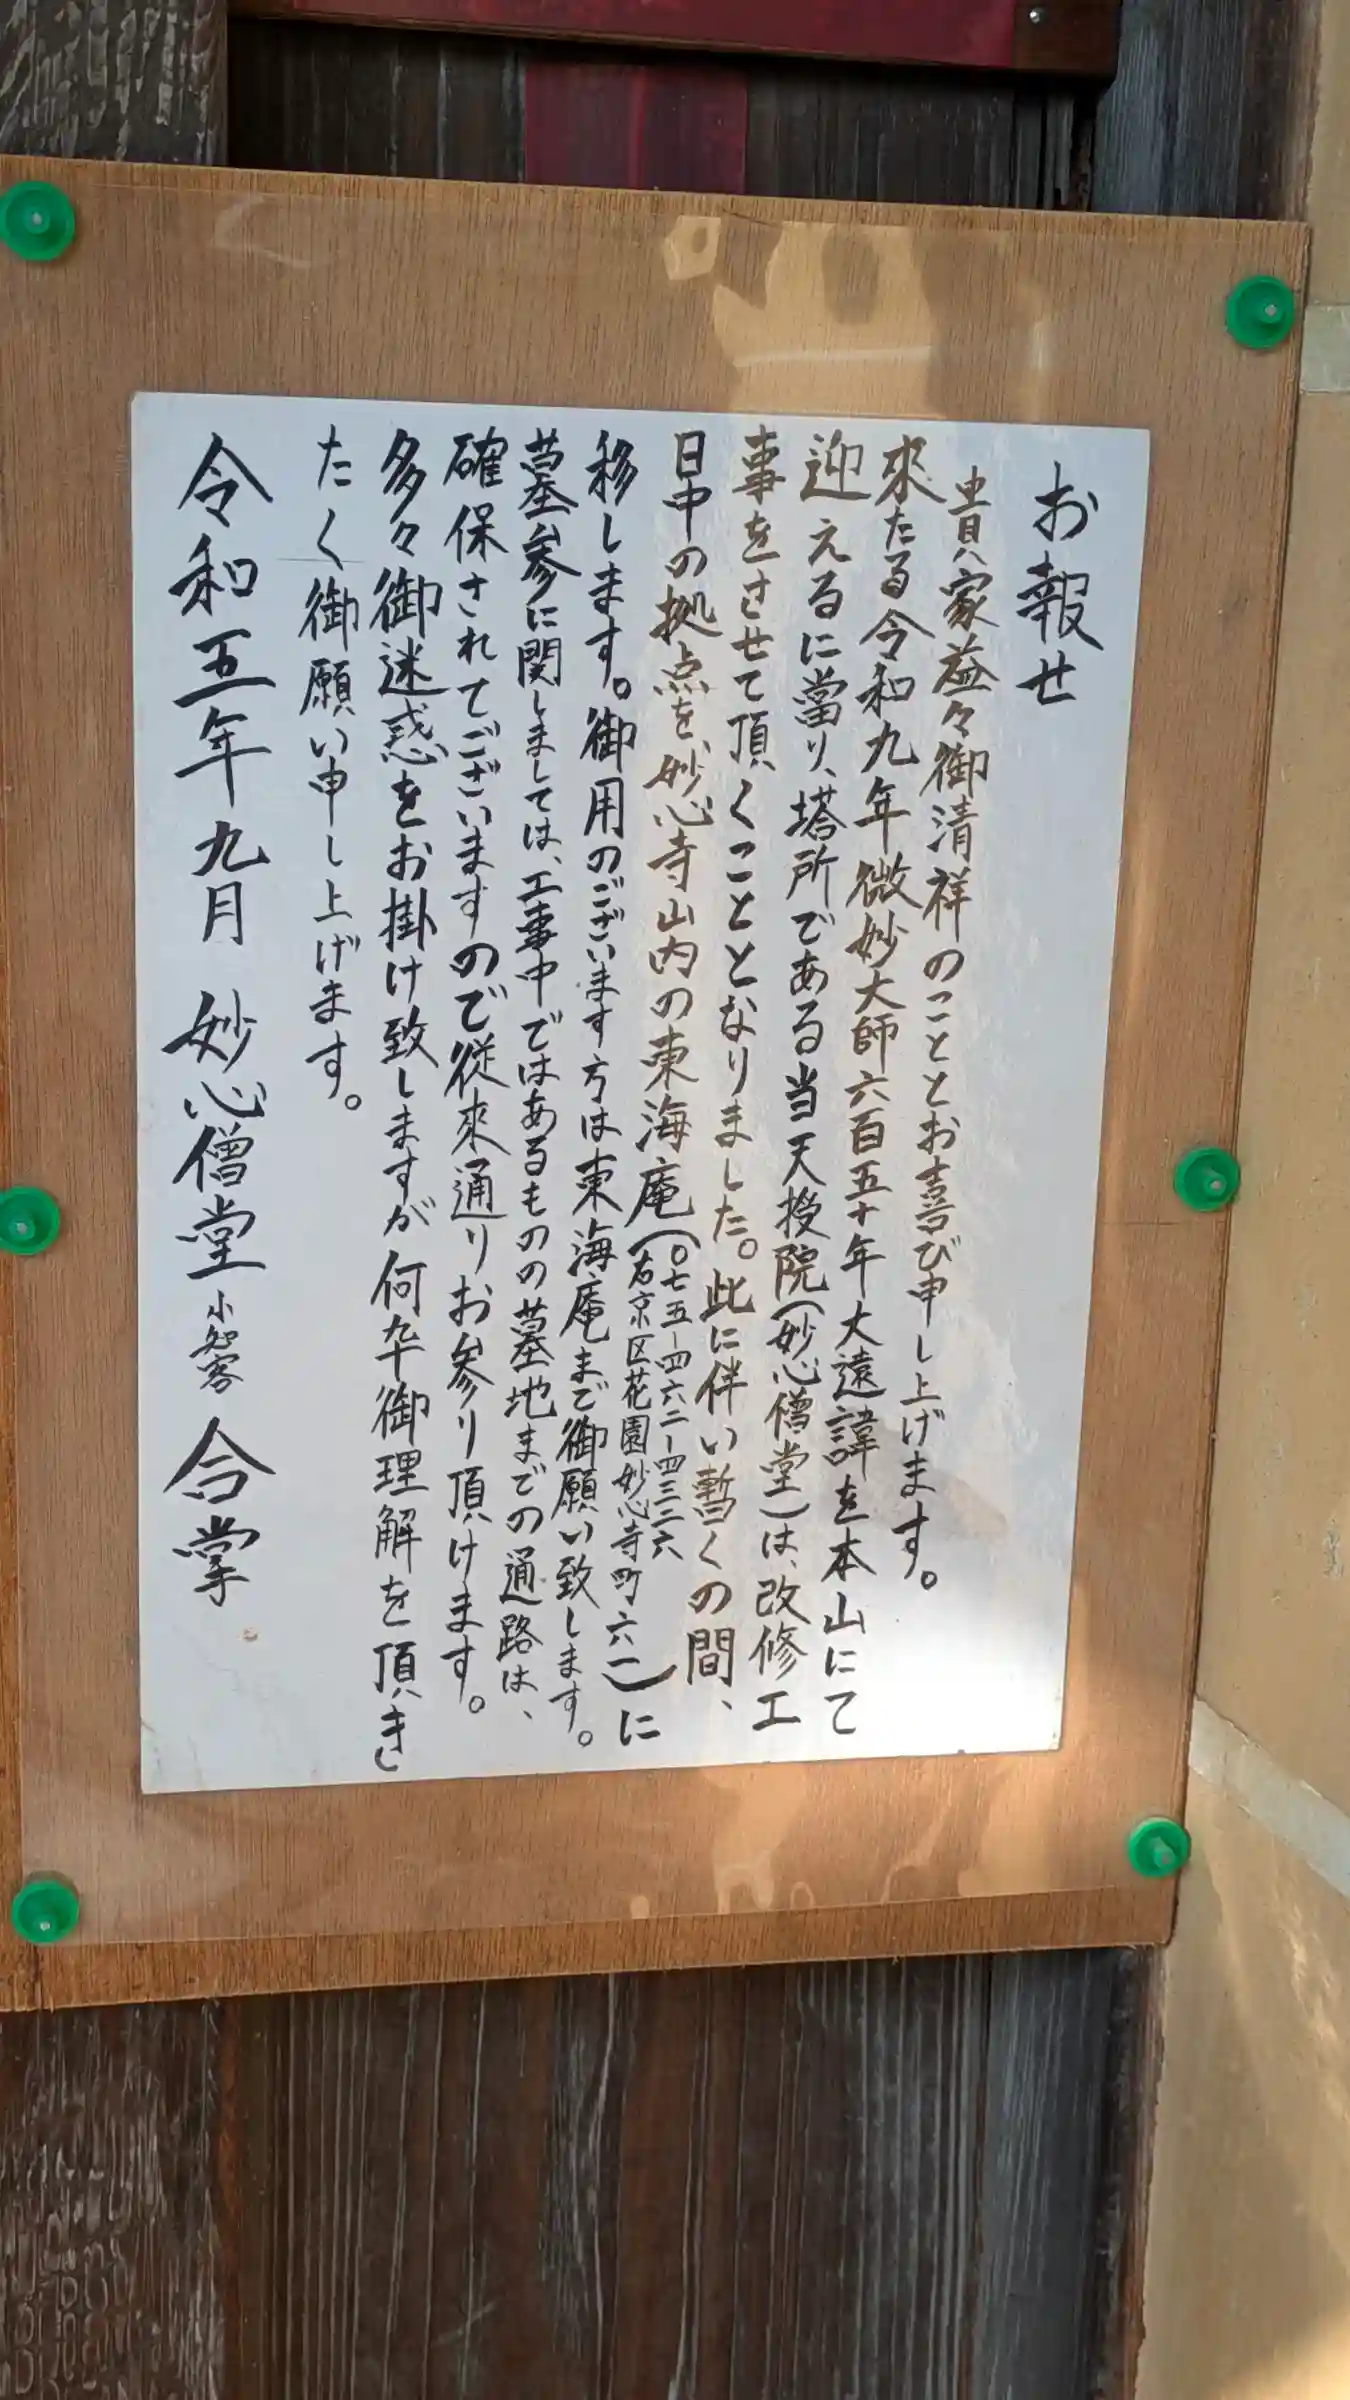 お報せ
貴家益々御清祥のこととお喜び申し上げます。
來たる令和九年微妙大師六百五十年大遠諱を本山にて
迎えるに當り、塔所である当天授院(妙心僧堂)は、改修工
事をさせて頂くこととなりました。此に伴い暫くの間、
日中の拠点を妙心寺山内の東海庵(〇七五-四六二-四三三六
右京区花園妙心寺町六一)に
移します。御用のございます方は東海庵まで御願い致します。
墓参に関しましては、工事中ではあるものの墓地までの通路は、
確保されてございますので従來通りお参り頂けます。
多々御迷惑をお掛け致しますが何卒御理解を頂き
たく御願い申し上げます。
令和五年九月 妙心僧堂 小知客 合掌